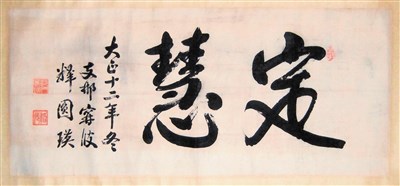 定慧
大正十二年冬
支那寧波
釋圓瑛